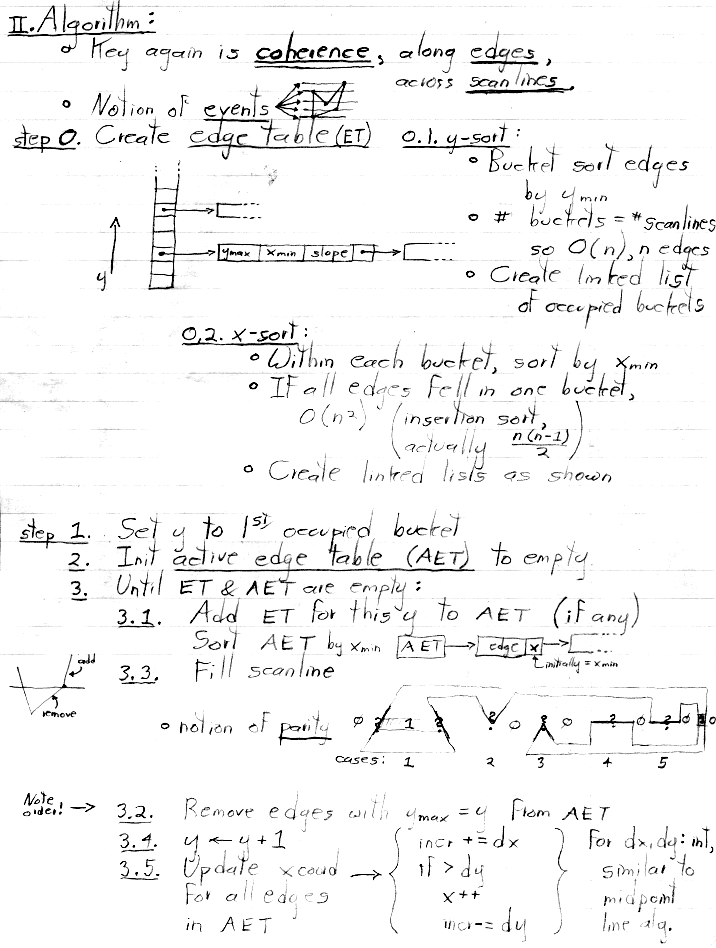 II. Algorithm:
• Key again is coherence, along edges,
across scanlines.
• Notion of events
step 0. Create edge table (ET)
0.1. y-sort:
• Bucket sort edges
by ymin
• # buckets = # scanlines
so O(n), n edges
• Create linked list
of occupied buckets
y
ymax xmin slope
0.2. x-sort:
• Within each bucket, sort by xmin
• If all edges fell in one bucket,
O(n²) (insertion sort,
actually n(n-1)/2)
• Create linked lists as shown
step 1. Set y to 1st occupied bucket
2. Init active edge table (AET) to empty
3. Until ET & AET are empty:
3.1. Add ET for this y to AET (if any)
Sort AET by xmin
AET edge x
initially = xmin
3.3. Fill scanline
add
remove
• notion of parity
0 ? 1 ? ? 0 ? 0 ? 0 ? 0 0
cases: 1 2 3 4 5
Note order! →
3.2. Remove edges with ymax = y from AET
3.4. y ← y + 1
3.5. Update x coord →
for all edges
in AET
incr += dx
if > dy
x++
incr -= dy
For dx, dy: int,
similar to
midpoint
line alg.